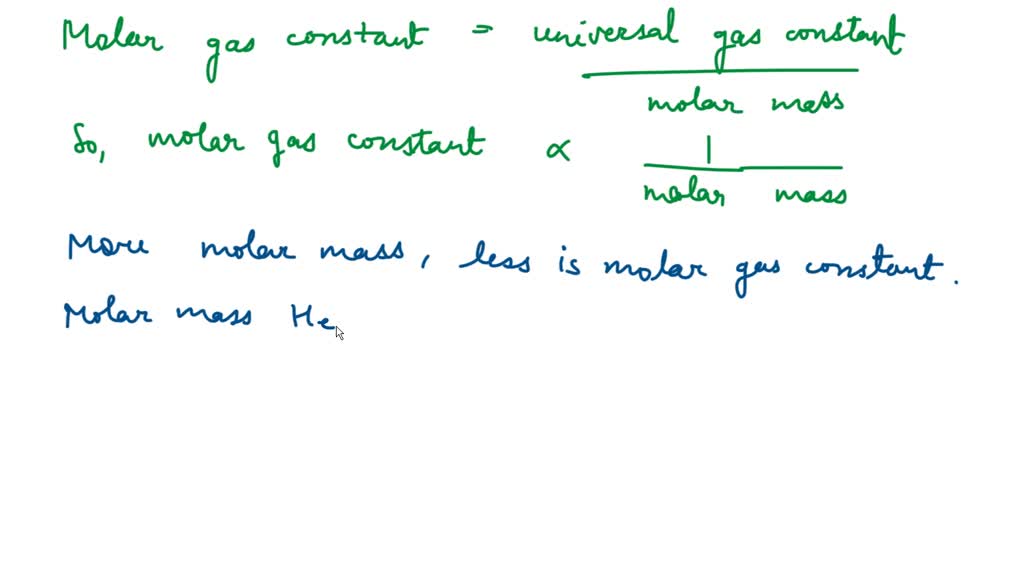 Molar gas constant = universal gas constant
molar mass
So, molar gas constant ∝ 1
molar mass
More molar mass, less is molar gas constant.
Molar mass He